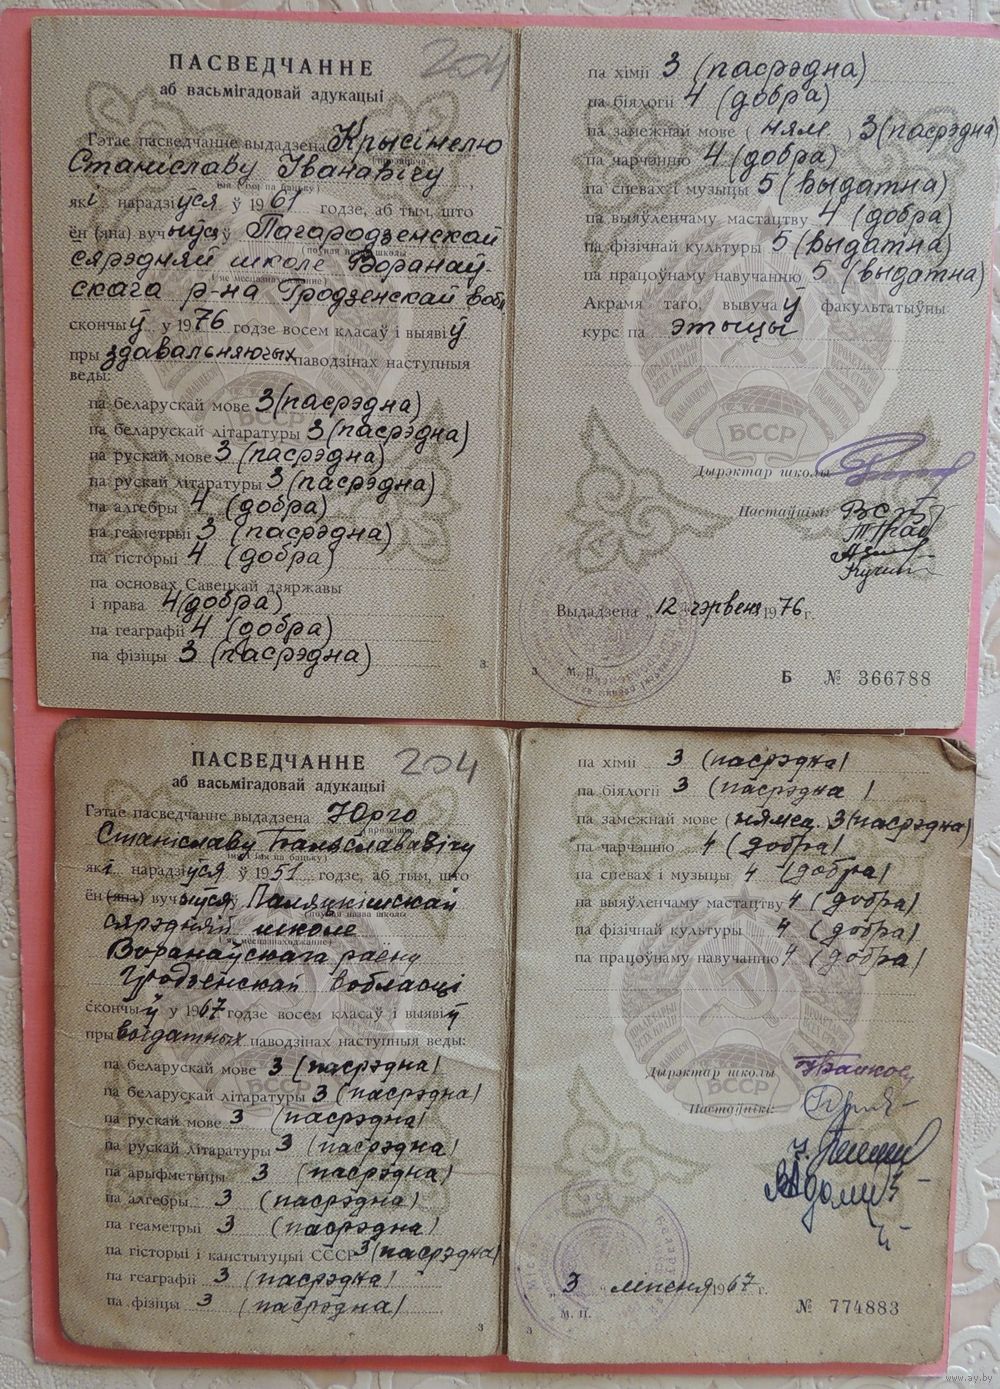 ПАСВЕДЧАННЕ
204
аб васьмігадовай адукацыі
Гэтае пасведчанне выдадзена Крысінелю
Станіславу Іванавічу
які нарадзіўся ў 1961 годзе, аб тым, што
ён (яна) вучыўся ў Пагародзенскай
(поўная назва школы
сярэдняй школе Воранаў-
(яе месцазнаходжанне)
скага р-на Гродзенскай вобл
скончыў у 1976 годзе восем класаў і выявіў
пры здавальняючых паводзінах наступныя
веды:
па беларускай мове 3 (пасрэдна)
па беларускай літаратуры 3 (пасрэдна)
па рускай мове 3 (пасрэдна)
па рускай літаратуры 3 (пасрэдна)
па алгебры 4 (добра)
па геаметрыі 3 (пасрэдна)
па гісторыі 4 (добра)
па основах Савецкай дзяржавы
і права 4 (добра)
па геаграфіі 4 (добра)
па фізіцы 3 (пасрэдна)
3
па хіміі 3 (пасрэдна)
па біялогіі 4 (добра)
па замежнай мове (ням.) 3 (пасрэдна)
па чарчэнню 4 (добра)
па спевах і музыцы 5 (выдатна)
па выяўленчаму мастацтву 4 (добра)
па фізічнай культуры 5 (выдатна)
па працоўнаму навучанню 5 (выдатна)
Акрамя таго, вывучаў факультатыўны
курс па этыцы
БССР
Дырэктар школы
Настаўнікі:
Выдадзена „12 чэрвеня 1976 г.
3 М. П.
Б № 366788
ПАСВЕДЧАННЕ
204
аб васьмігадовай адукацыі
Гэтае пасведчанне выдадзена Юрго
Станіславу Баляслававічу
які нарадзіўся ў 1951 годзе, аб тым, што
ён (яна) вучыўся ў Паляцкішскай
(поўная назва школы
сярэдняй школе
(яе месцазнаходжанне)
Воранаўскага раёну
Гродзенскай вобласці
скончыў у 1967 годзе восем класаў і выявіў
пры выдатных паводзінах наступныя веды:
па беларускай мове 3 (пасрэдна)
па беларускай літаратуры 3 (пасрэдна)
па рускай мове 3 (пасрэдна)
па рускай літаратуры 3 (пасрэдна)
па арыфметыцы 3 (пасрэдна)
па алгебры 3 (пасрэдна)
па геаметрыі 3 (пасрэдна)
па гісторыі і канстытуцыі СССР 3 (пасрэдна)
па геаграфіі 3 (пасрэдна)
па фізіцы 3 (пасрэдна)
3
па хіміі 3 (пасрэдна)
па біялогіі 3 (пасрэдна)
па замежнай мове (нямец. 3 (пасрэдна)
па чарчэнню 4 (добра)
па спевах і музыцы 4 (добра)
па выяўленчаму мастацтву 4 (добра)
па фізічнай культуры 4 (добра)
па працоўнаму навучанню 4 (добра)
БССР
Дырэктар школы
Настаўнікі:
„3 ліпеня 1967 г.
3 М. П.
№ 774883
www.ay.by